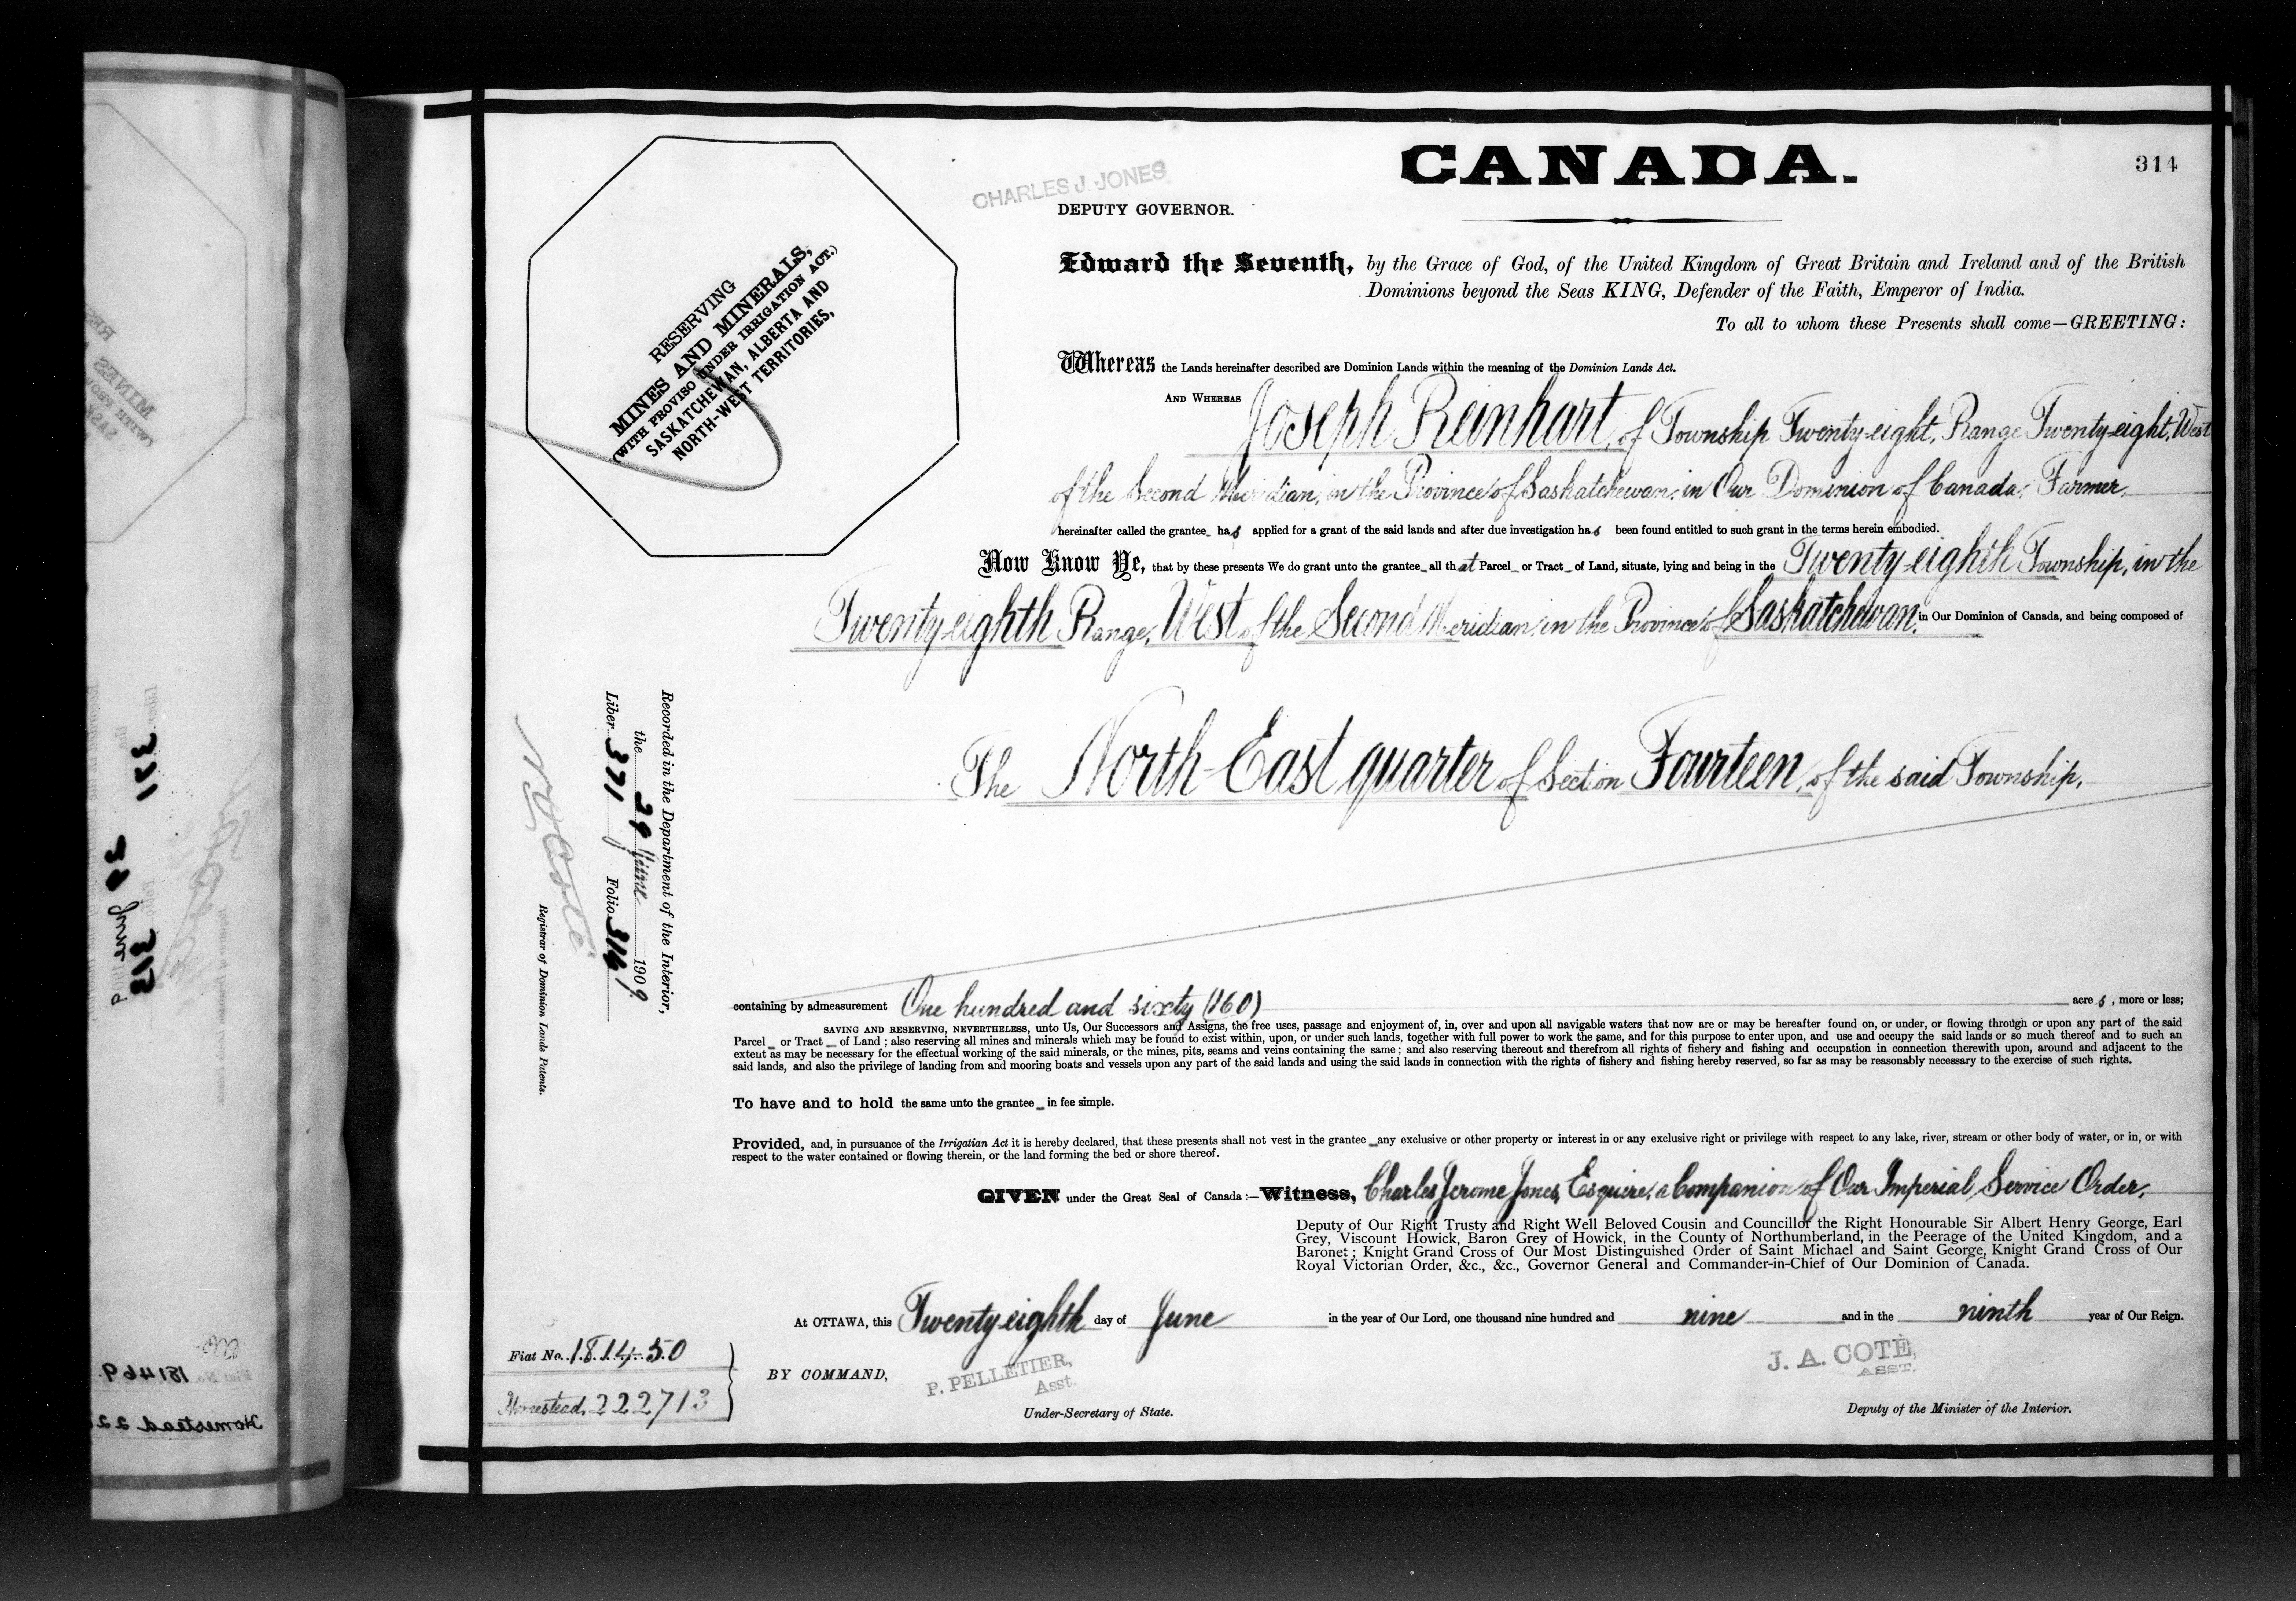 CANADA.
314
CHARLES J. JONES
DEPUTY GOVERNOR.
RESERVING
MINES AND MINERALS,
(WITH PROVISO UNDER IRRIGATION ACT.)
SASKATCHEWAN, ALBERTA AND
NORTH-WEST TERRITORIES,
Edward the Seventh, by the Grace of God, of the United Kingdom of Great Britain and Ireland and of the British
Dominions beyond the Seas KING, Defender of the Faith, Emperor of India.
To all to whom these Presents shall come—GREETING:
Whereas the Lands hereinafter described are Dominion Lands within the meaning of the Dominion Lands Act.
AND WHEREAS Joseph Reinhart, of Township Twenty-eight, Range Twenty-eight, West
of the Second Meridian, in the Province of Saskatchewan, in Our Dominion of Canada, Farmer,
hereinafter called the grantee_ has applied for a grant of the said lands and after due investigation has been found entitled to such grant in the terms herein embodied.
Now Know Ye, that by these presents We do grant unto the grantee_ all that Parcel_ or Tract_ of Land, situate, lying and being in the Twenty-eighth Township, in the
Twenty-eighth Range, West of the Second Meridian, in the Province of Saskatchewan, in Our Dominion of Canada, and being composed of
The North-East quarter of Section Fourteen, of the said Township,
Recorded in the Department of the Interior,
the 29 June 1909
Liber 371 Folio 314
N O Coté
Registrar of Dominion Lands Patents.
containing by admeasurement One hundred and sixty (160) acres, more or less;
SAVING AND RESERVING, NEVERTHELESS, unto Us, Our Successors and Assigns, the free uses, passage and enjoyment of, in, over and upon all navigable waters that now are or may be hereafter found on, or under, or flowing through or upon any part of the said
Parcel_ or Tract_ of Land; also reserving all mines and minerals which may be found to exist within, upon, or under such lands, together with full power to work the same, and for this purpose to enter upon, and use and occupy the said lands or so much thereof and to such an
extent as may be necessary for the effectual working of the said minerals, or the mines, pits, seams and veins containing the same; and also reserving thereout and therefrom all rights of fishery and fishing and occupation in connection therewith upon, around and adjacent to the
said lands, and also the privilege of landing from and mooring boats and vessels upon any part of the said lands and using the said lands in connection with the rights of fishery and fishing hereby reserved, so far as may be reasonably necessary to the exercise of such rights.
To have and to hold the same unto the grantee_ in fee simple.
Provided, and, in pursuance of the Irrigatian Act it is hereby declared, that these presents shall not vest in the grantee_ any exclusive or other property or interest in or any exclusive right or privilege with respect to any lake, river, stream or other body of water, or in, or with
respect to the water contained or flowing therein, or the land forming the bed or shore thereof.
GIVEN under the Great Seal of Canada:—Witness, Charles Jerome Jones, Esquire, a Companion of Our Imperial Service Order,
Deputy of Our Right Trusty and Right Well Beloved Cousin and Councillor the Right Honourable Sir Albert Henry George, Earl
Grey, Viscount Howick, Baron Grey of Howick, in the County of Northumberland, in the Peerage of the United Kingdom, and a
Baronet; Knight Grand Cross of Our Most Distinguished Order of Saint Michael and Saint George, Knight Grand Cross of Our
Royal Victorian Order, &c., &c., Governor General and Commander-in-Chief of Our Dominion of Canada.
At OTTAWA, this Twenty-eighth day of June in the year of Our Lord, one thousand nine hundred and nine and in the ninth year of Our Reign.
Fiat No. 181450
Homestead, 222713
BY COMMAND,
P. PELLETIER,
Asst.
Under-Secretary of State.
J. A. COTÉ,
ASST.
Deputy of the Minister of the Interior.